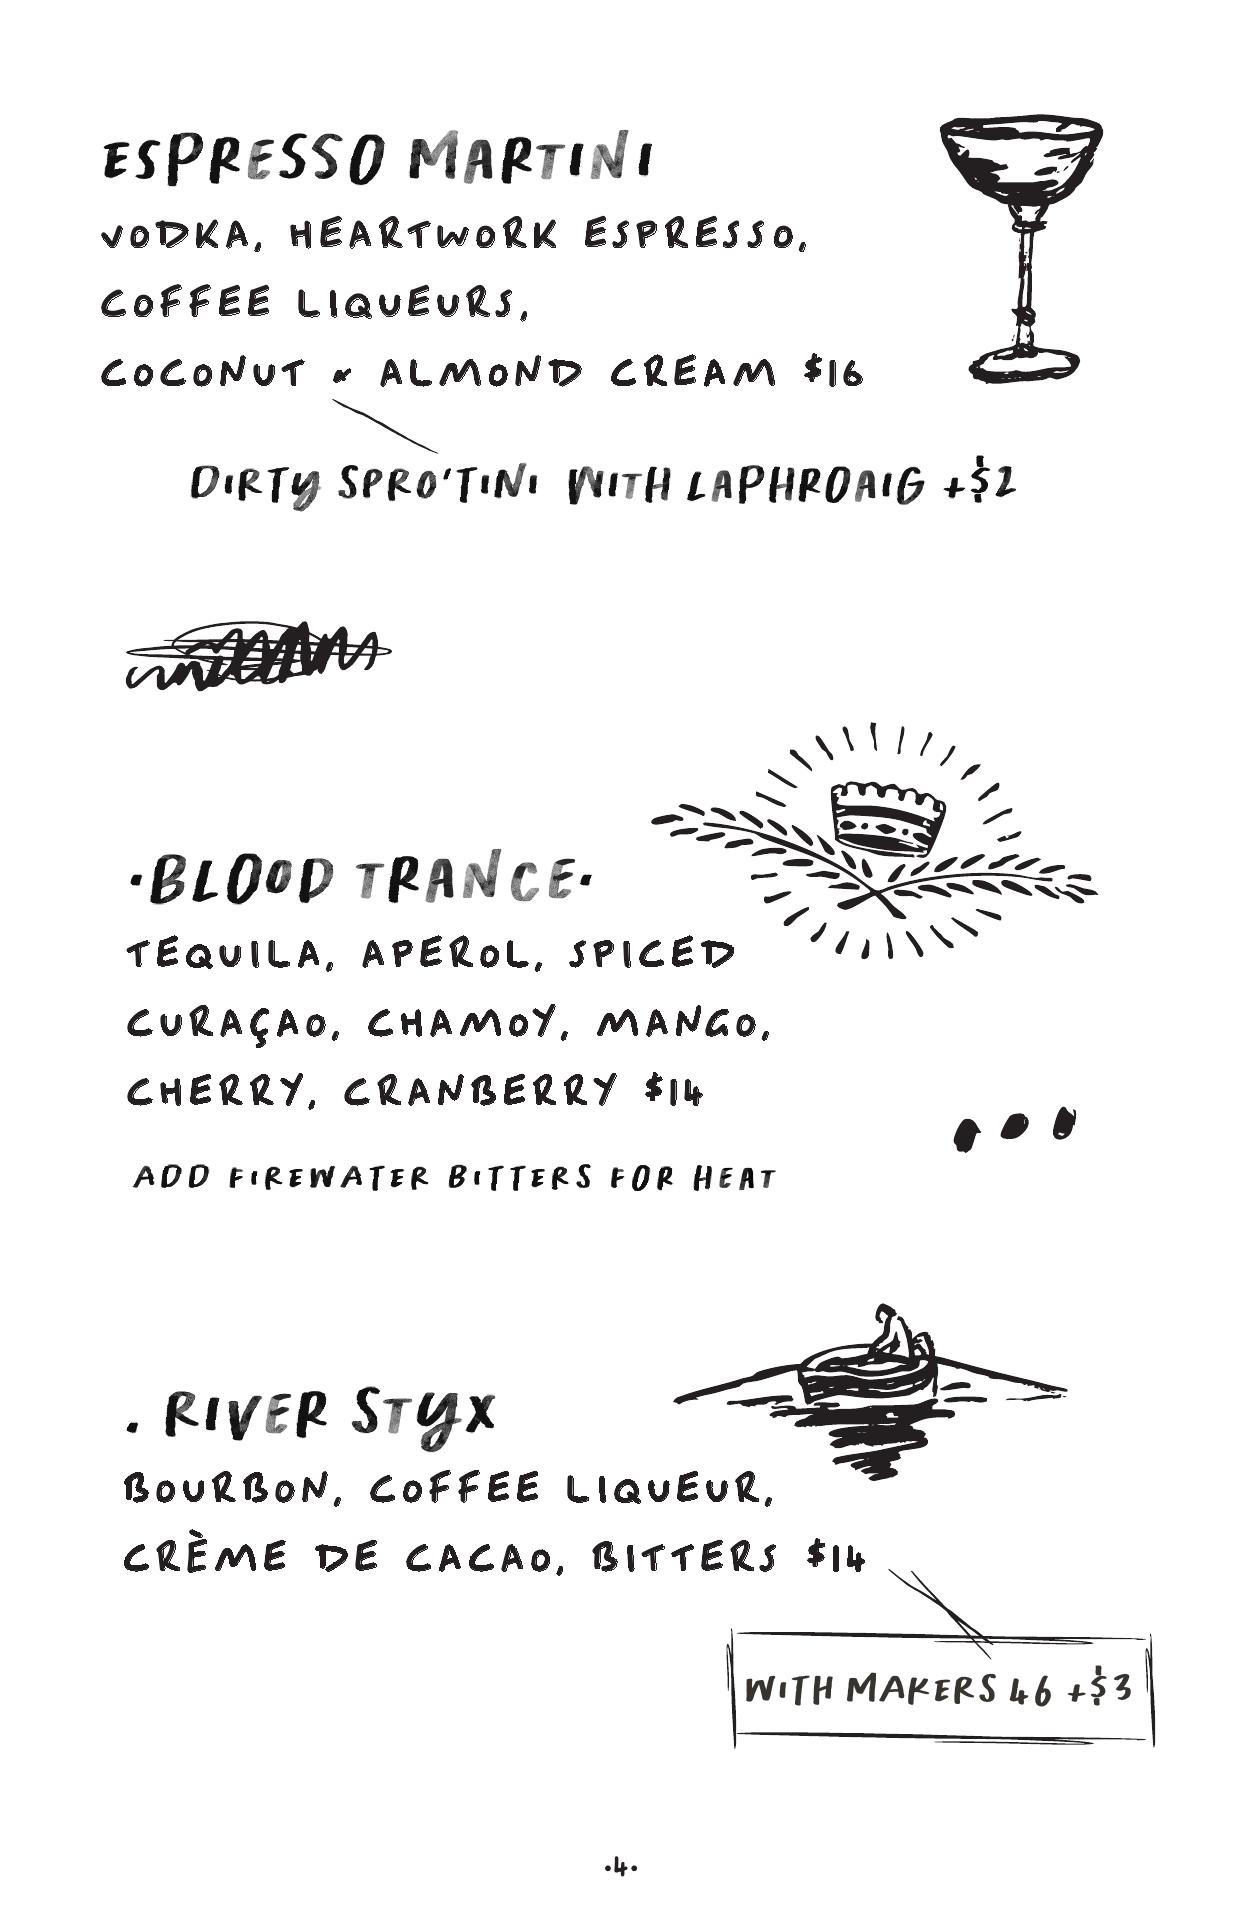 ESPRESSO MARTINI
VODKA, HEARTWORK ESPRESSO,
COFFEE LIQUEURS,
COCONUT & ALMOND CREAM $16
DIRTY SPRO'TINI WITH LAPHROAIG +$2
·BLOOD TRANCE·
TEQUILA, APEROL, SPICED
CURAÇAO, CHAMOY, MANGO,
CHERRY, CRANBERRY $14
ADD FIREWATER BITTERS FOR HEAT
. RIVER STYX
BOURBON, COFFEE LIQUEUR,
CRÈME DE CACAO, BITTERS $14
WITH MAKERS 46 +$3
·4·